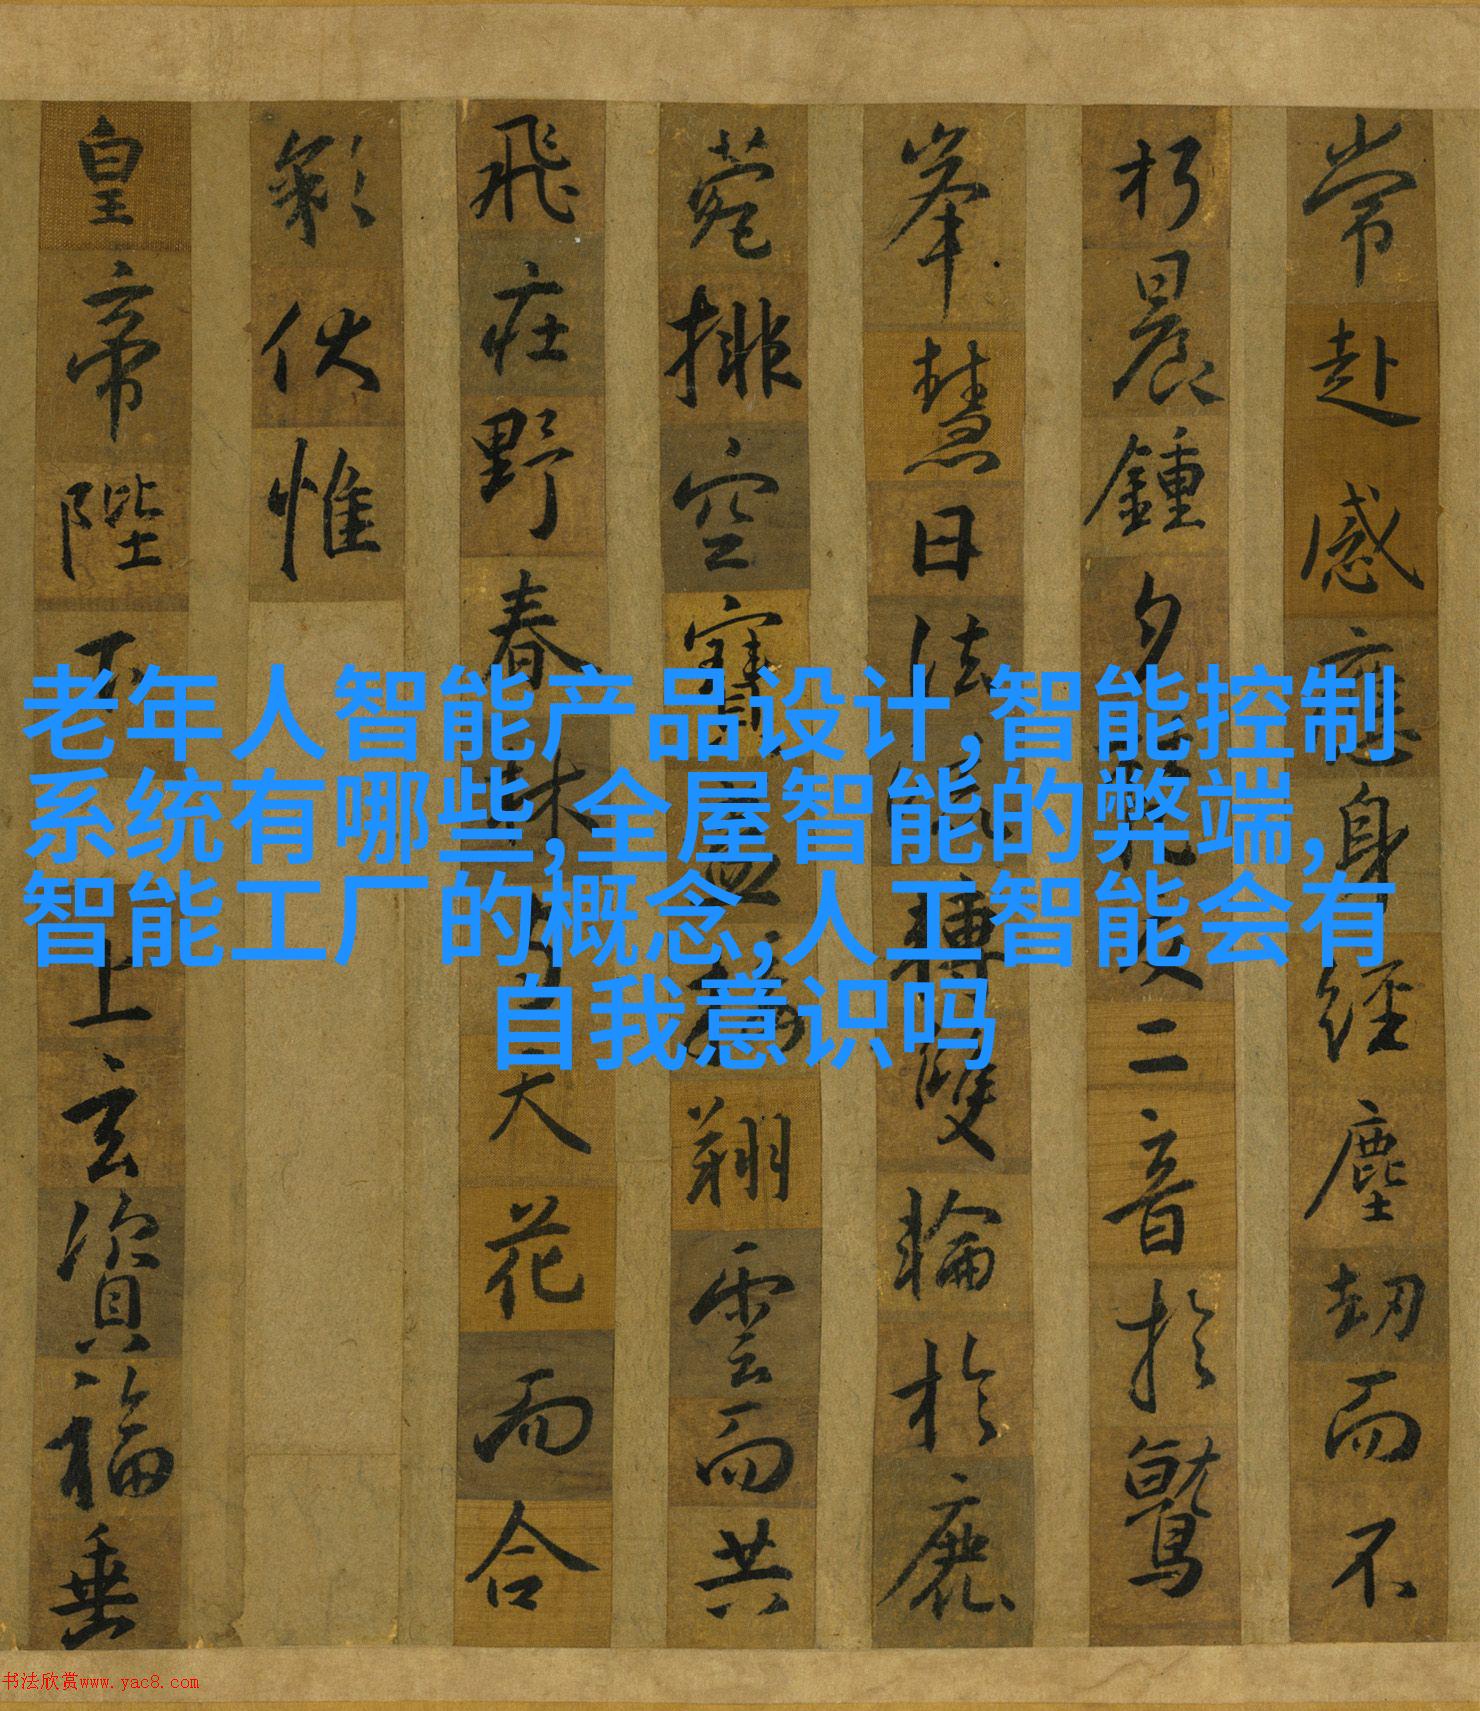 常赴感應身經塵劫而不
朽晨鍾夕梵交二音於鷲
峯慧日法流轉雙輪於鹿
菀排空寶蓋接翔雲而共
飛莊野春林與天花而合
彩伏惟
皇帝陛下上玄資福垂
老年人智能产品设计,智能控制
系统有哪些,全屋智能的弊端,
智能工厂的概念,人工智能会有
自我意识吗
书法欣赏www.yac8.com